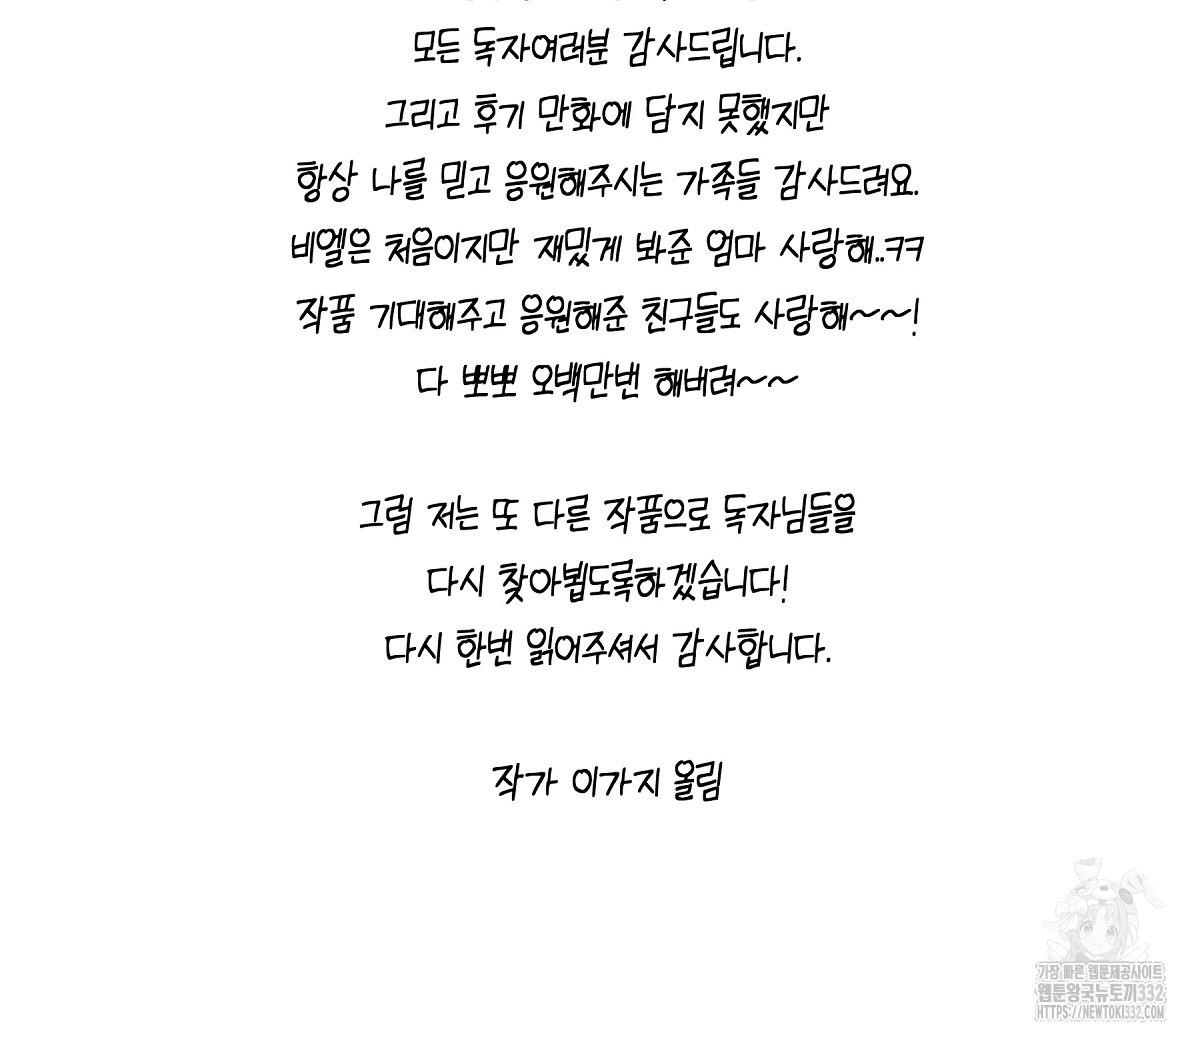 모든 독자여러분 감사드립니다.
그리고 후기 만화에 담지 못했지만
항상 나를 믿고 응원해주시는 가족들 감사드려요.
비엘은 처음이지만 재밌게 봐준 엄마 사랑해..ㅋㅋ
작품 기대해주고 응원해준 친구들도 사랑해~~!
다 뽀뽀 오백만번 해버려~~
그럼 저는 또 다른 작품으로 독자님들을
다시 찾아뵙도록하겠습니다!
다시 한번 읽어주셔서 감사합니다.
작가 이가지 올림
가장 빠른 웹툰제공사이트
웹툰왕국뉴토끼332
HTTPS://NEWTOKI332.COM